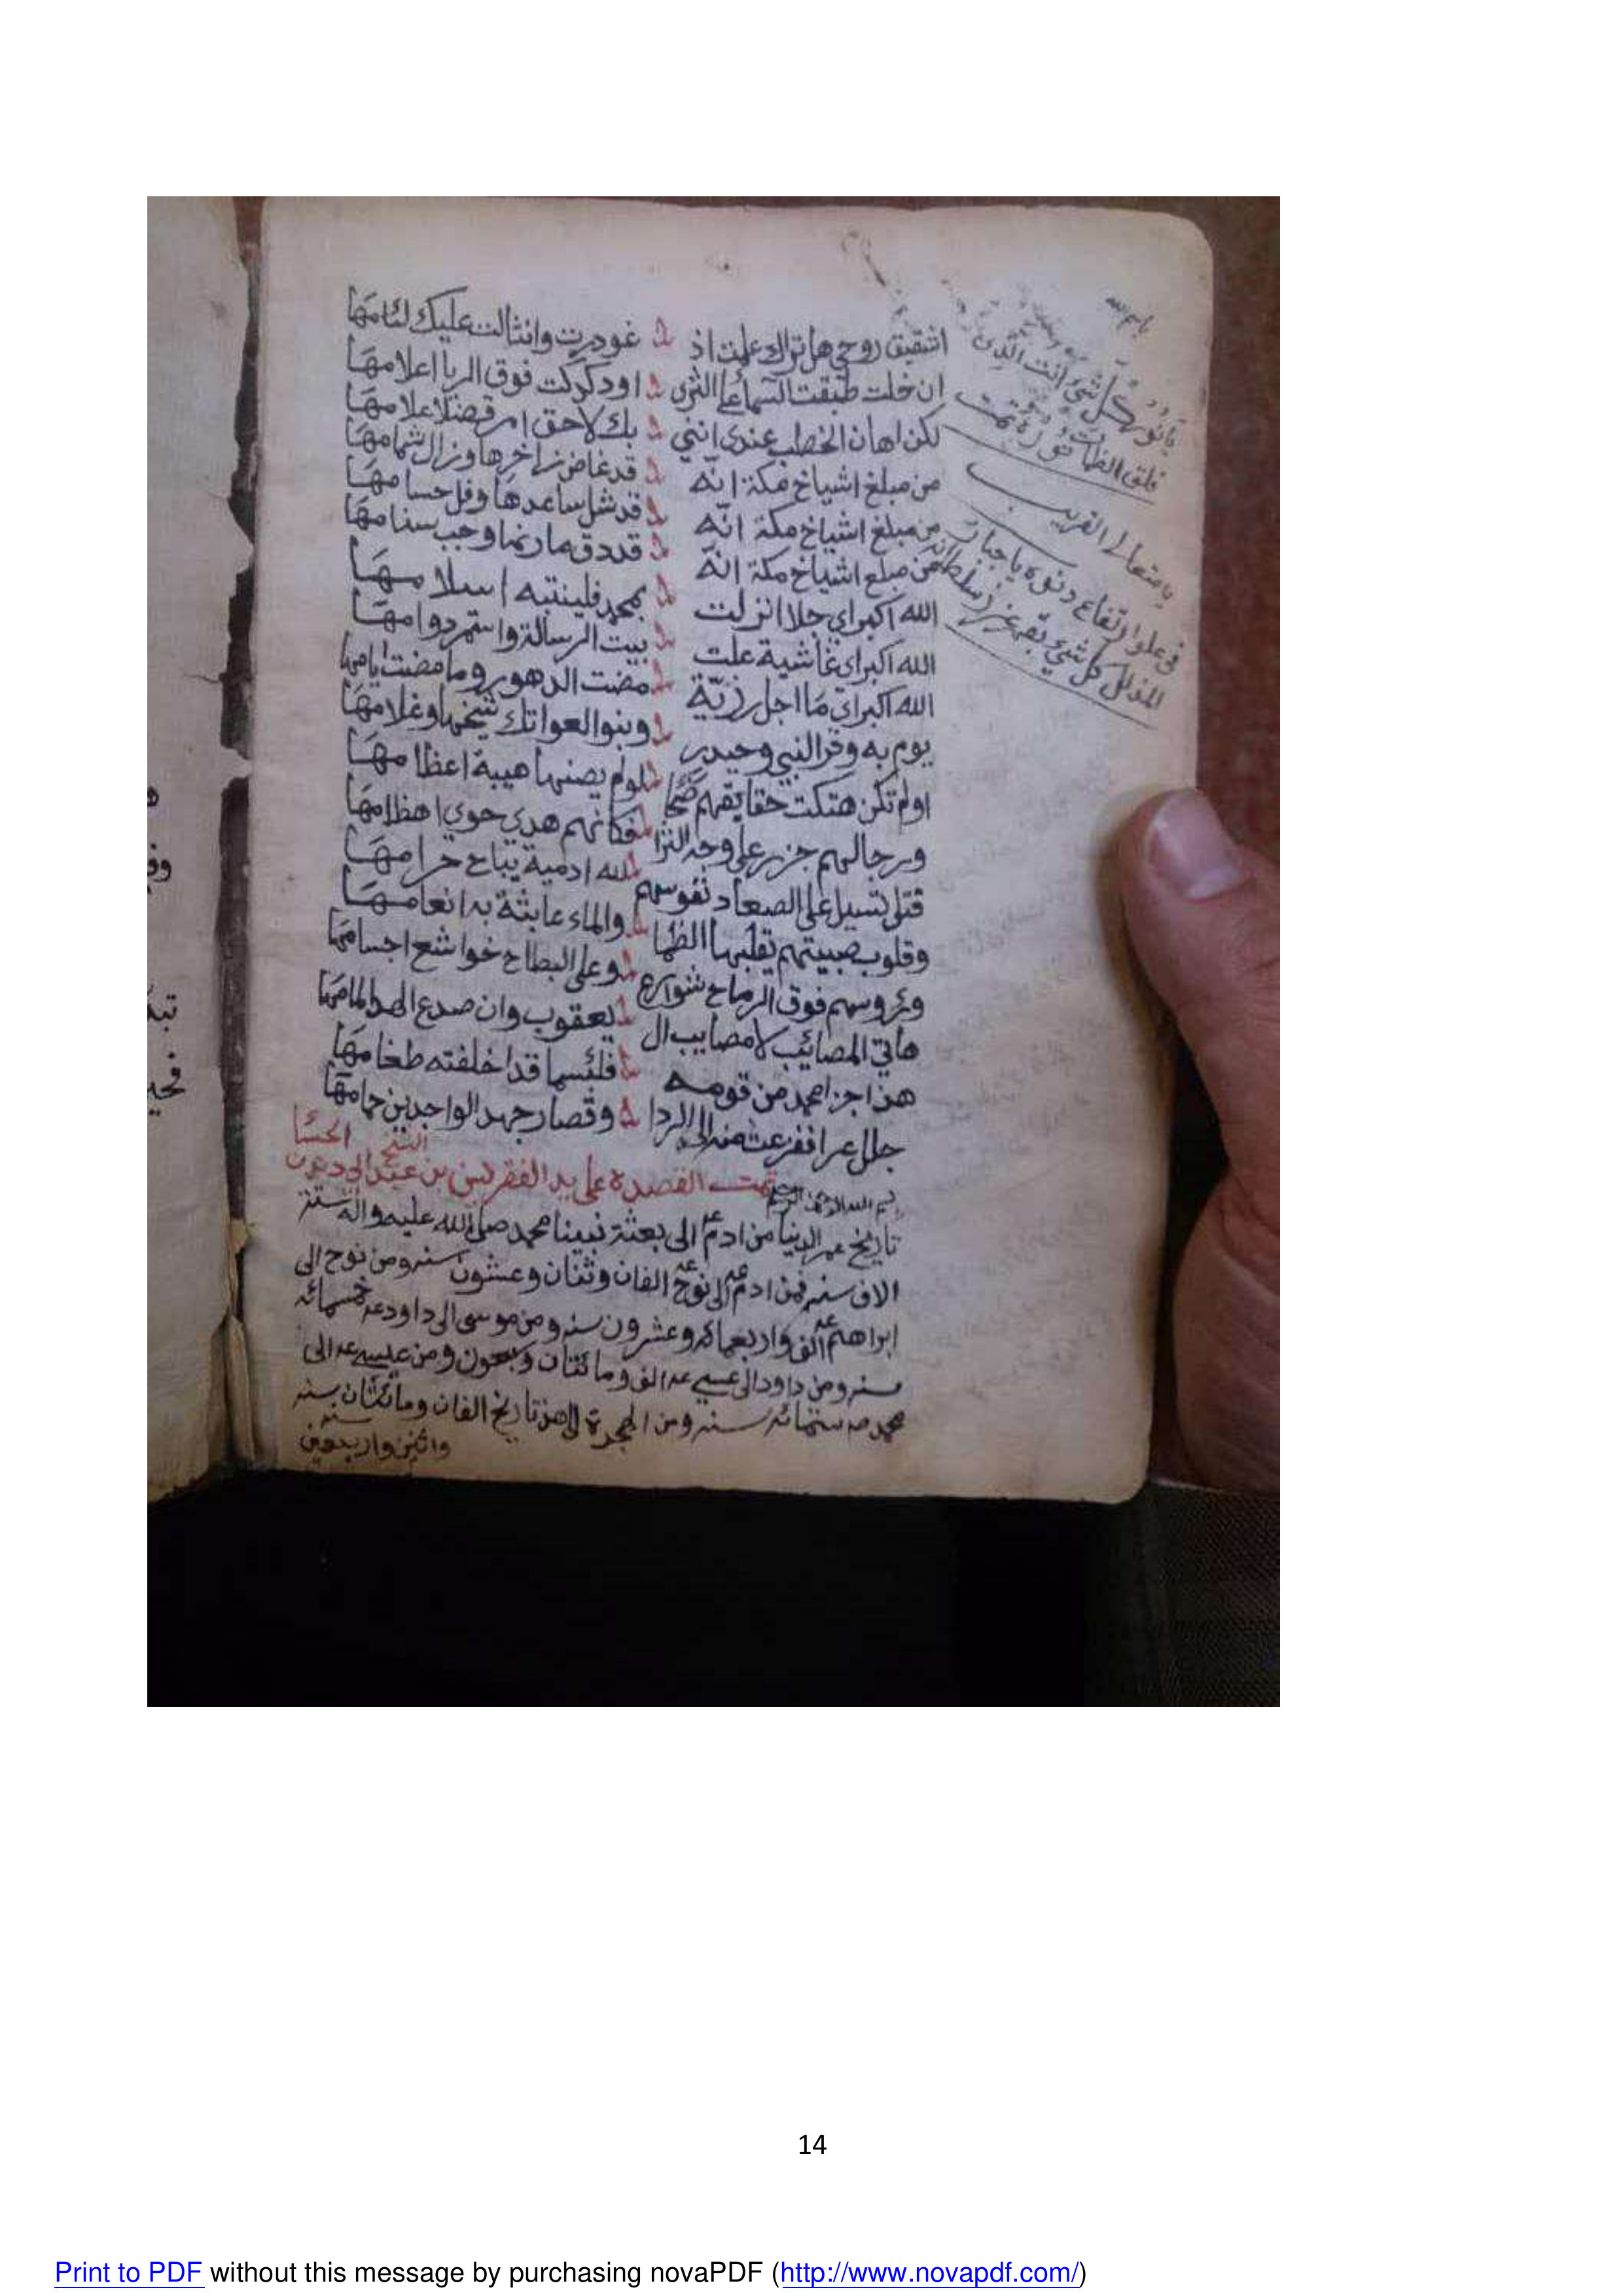 اشقيق روحي هل تراك علمت اذ غودرت وانثالت عليك لئامها
ان خلت طبقت السماء على الثرى او دكدكت فوق الربا اعلامها
لكن اهان الخطب عندي انني بك لاحق امر قضا علامها
من مبلغ اشياخ مكة انه قد غاض زاخرها وزال شمامها
من مبلغ اشياخ مكة انه قد شل ساعدها وفل حسامها
من مبلغ اشياخ مكة انه قد دق مارنها وجب سنامها
الله اكبر اي جلا انزلت بمحمد فلينتبه اسلامها
الله اكبر اي غاشية علت بيت الرسالة واستمر دوامها
الله اكبر اي ما اجل رزية مضت الدهور وما مضت ايامها
يوم به وفر النبي وحيدر وبنو العواتك شيخها وغلامها
اولم تكن هتكت حقايقهم ضحا لولم يصنها هيبة اعظامها
ورجالهم جزر على وجه الثرا فكانهم هدي حوى اهظامها
قتلى تسيل على الصعاد نفوسهم لله ادمية يباح حرامها
وقلوب صبيتهم يقلبها الظما والماء عابثة به انعامها
ورءوسهم فوق الرماح شوارع وعلى البطاح خواشع اجسامها
هاتي المصائب لا مصايب ال يعقوب وان صدع الهدا المامها
هذا جزا احمد من قومه فلئسما قد اخلفته طغامها
جلل عرا ففرعت منه الى الردا وقصار جهد الواجدين حمامها
تمت القصيدة على يد الفقر بن عبد الشيخ الحسا
بسم الله الرحمن الرحيم
تاريخ عمر الدنيا من ادم ع الى بعثة نبينا محمد صلى الله عليه واله ستة
الاف سنه فمن ادم ع الى نوح ع الفان وثنان وعشرون سنه ومن نوح الى
ابراهيم ع الف واربعمائه وعشرون سنه ومن موسى الى داود ع خمسمائه
سنه ومن داود الى عيسى ع الف ومائتان وسبعون ومن عيسى ع الى
محمد ص ستمائه سنه ومن الهجرة الى هذ تاريخ الفان ومائتان سنه
واثنين واربعين سنه
باسم الله
يا نور كل شي انت الذي
فلق الظلمات نوره تمت
يا متعالي القريب
في علو ارتفاع دنوه يا جبار
المذلل كل شي بقهر عزيز سلطانه
14
Print to PDF without this message by purchasing novaPDF (http://www.novapdf.com/)